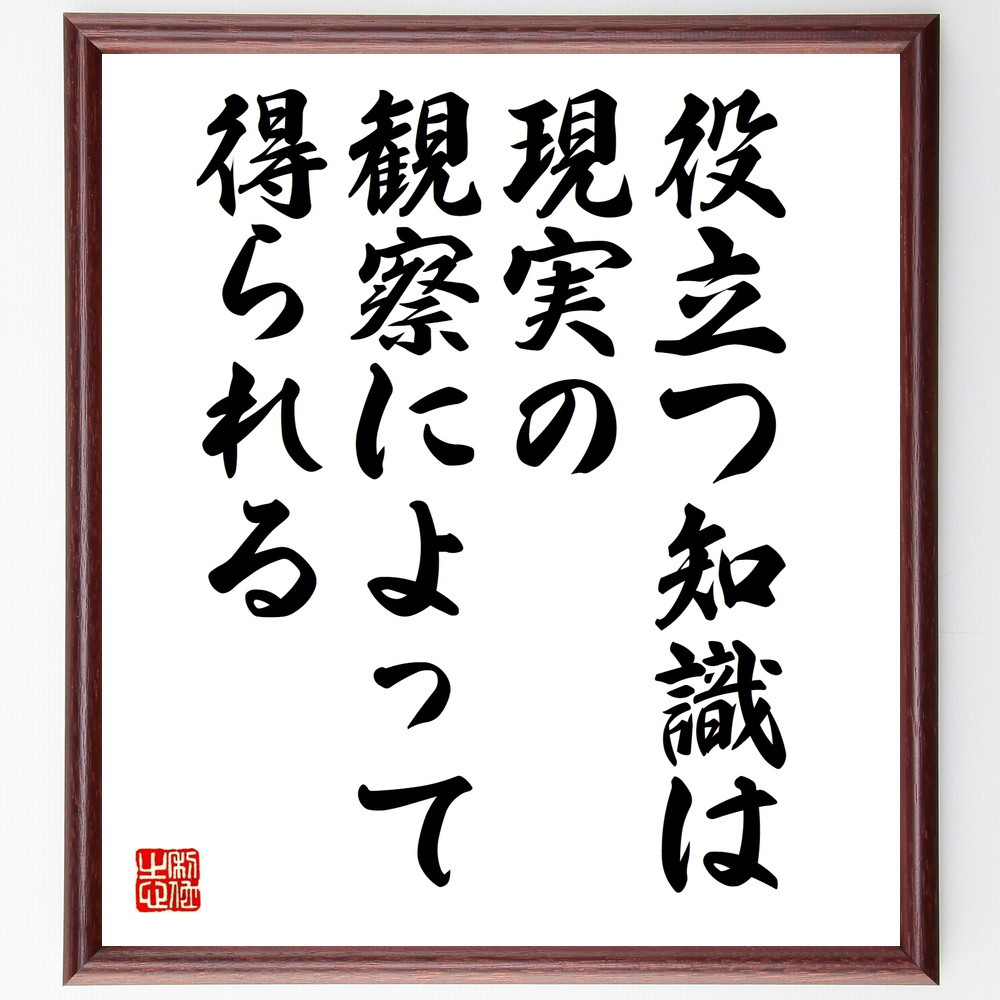 役立つ知識は
現実の
観察によって
得られる